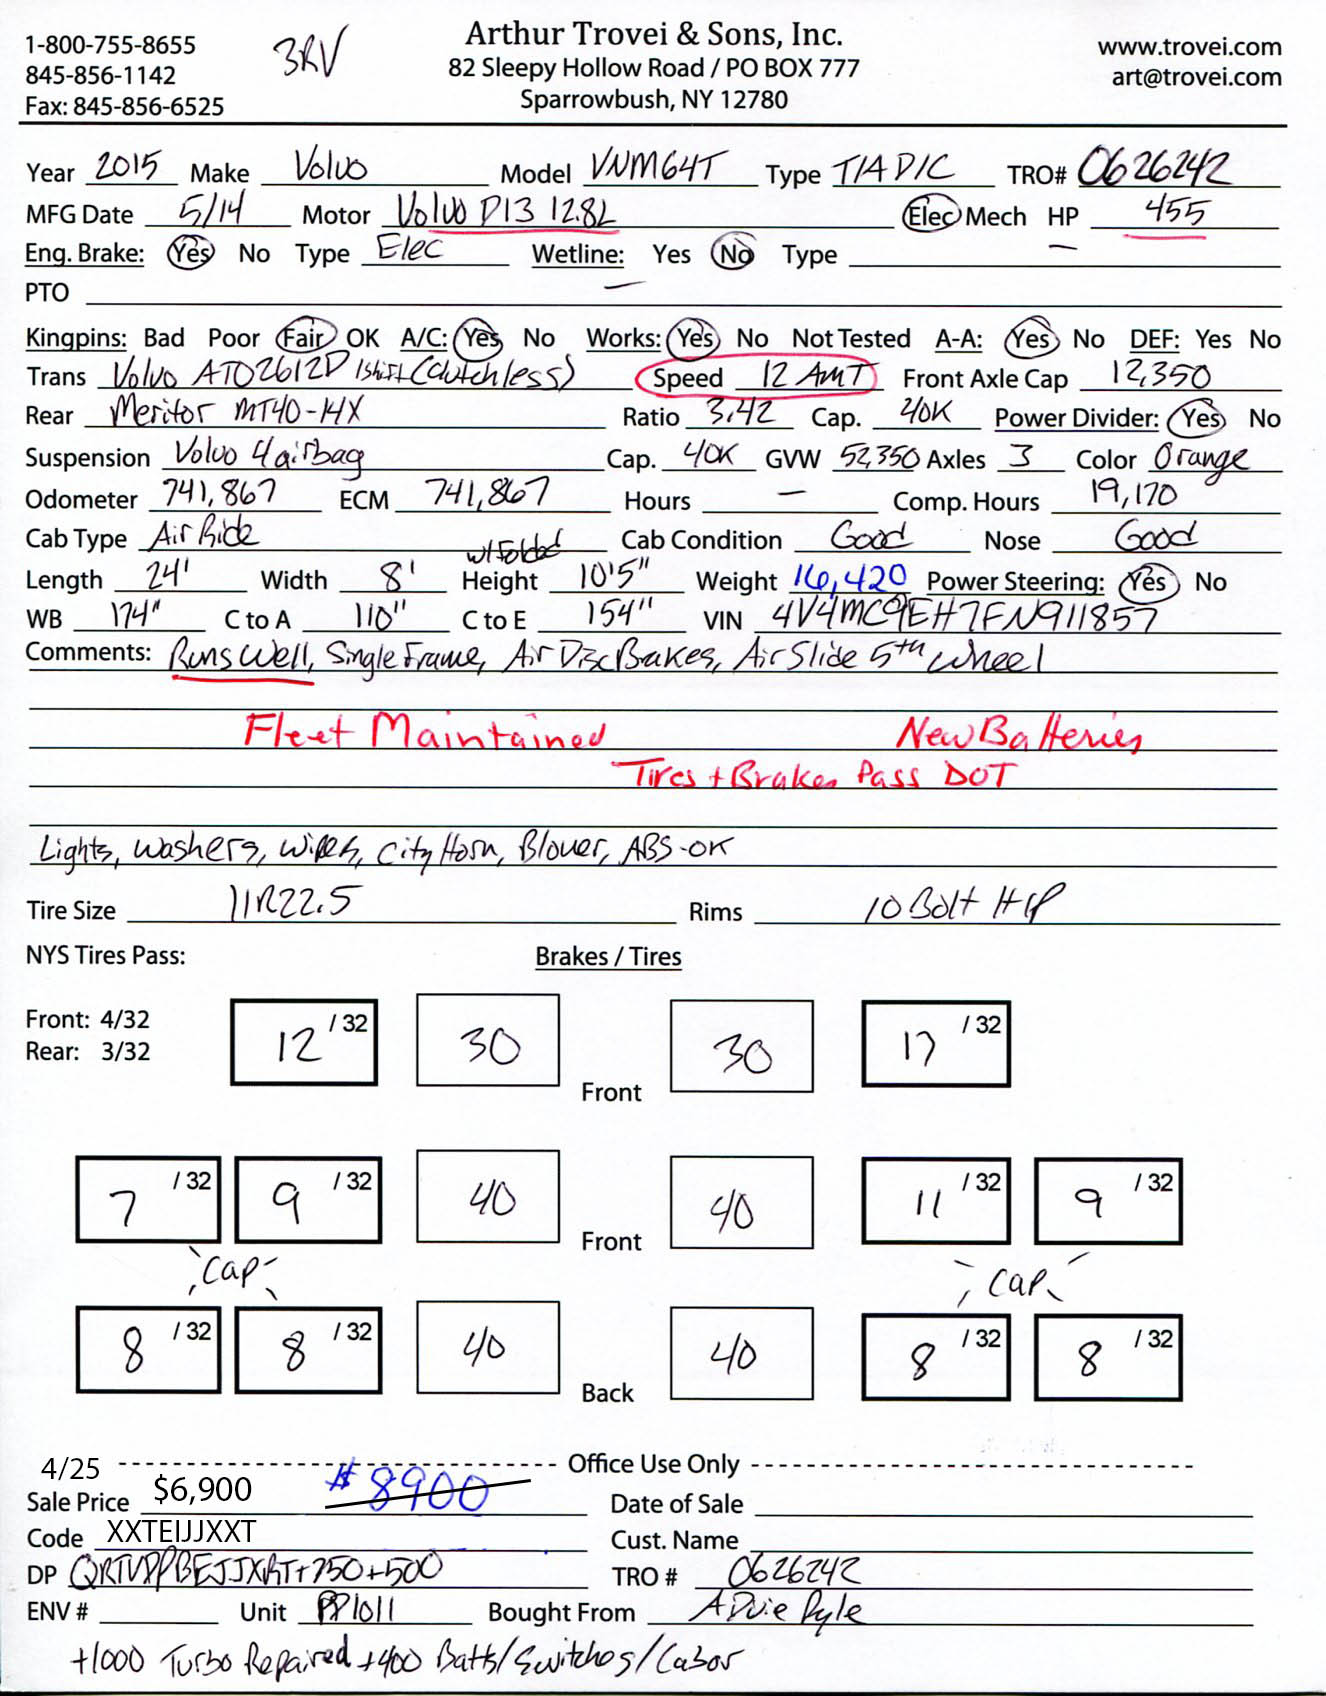 1-800-755-8655
845-856-1142
Fax: 845-856-6525
3RV
Arthur Trovei & Sons, Inc.
82 Sleepy Hollow Road / PO BOX 777
Sparrowbush, NY 12780
www.trovei.com
art@trovei.com
Year 2015 Make Volvo Model VNM64T Type T/A D/C TRO# 0626242
MFG Date 5/14 Motor Volvo D13 12.8L Elec Mech HP 455
Eng. Brake: Yes No Type Elec Wetline: Yes No Type —
PTO —
Kingpins: Bad Poor Fair OK A/C: Yes No Works: Yes No Not Tested A-A: Yes No DEF: Yes No
Trans Volvo ATO2612D Ishift (Clutchless) Speed 12 AMT Front Axle Cap 12,350
Rear Meritor MT40-14X Ratio 3.42 Cap. 40K Power Divider: Yes No
Suspension Volvo 4 airbag Cap. 40K GVW 52,350 Axles 3 Color Orange
Odometer 741,867 ECM 741,867 Hours — Comp. Hours 19,170
Cab Type Air Ride Cab Condition Good Nose Good
w/ Folded
Length 24' Width 8' Height 10'5" Weight 16,420 Power Steering: Yes No
WB 174" C to A 110" C to E 154" VIN 4V4MC9EH7FN911857
Comments: Runs Well, Single Frame, Air Disc Brakes, Air Slide 5th Wheel
Fleet Maintained New Batteries
Tires + Brakes Pass DOT
Lights, Washers, Wipers, City Horn, Blower, ABS-OK
Tire Size 11R22.5 Rims 10 Bolt HP
NYS Tires Pass: Brakes / Tires
Front: 4/32
Rear: 3/32
12 /32 30 Front 30 17 /32
7 /32 9 /32 40 Front 40 11 /32 9 /32
Cap Cap
8 /32 8 /32 40 Back 40 8 /32 8 /32
4/25 Office Use Only
Sale Price $6,900 $8900 Date of Sale
Code XXTEIJJXXT Cust. Name
DP +750+500 TRO # 0626242
ENV # Unit PP1011 Bought From Pyle
+1000 Turbo Repaired +400 Batts/Switches/Labor